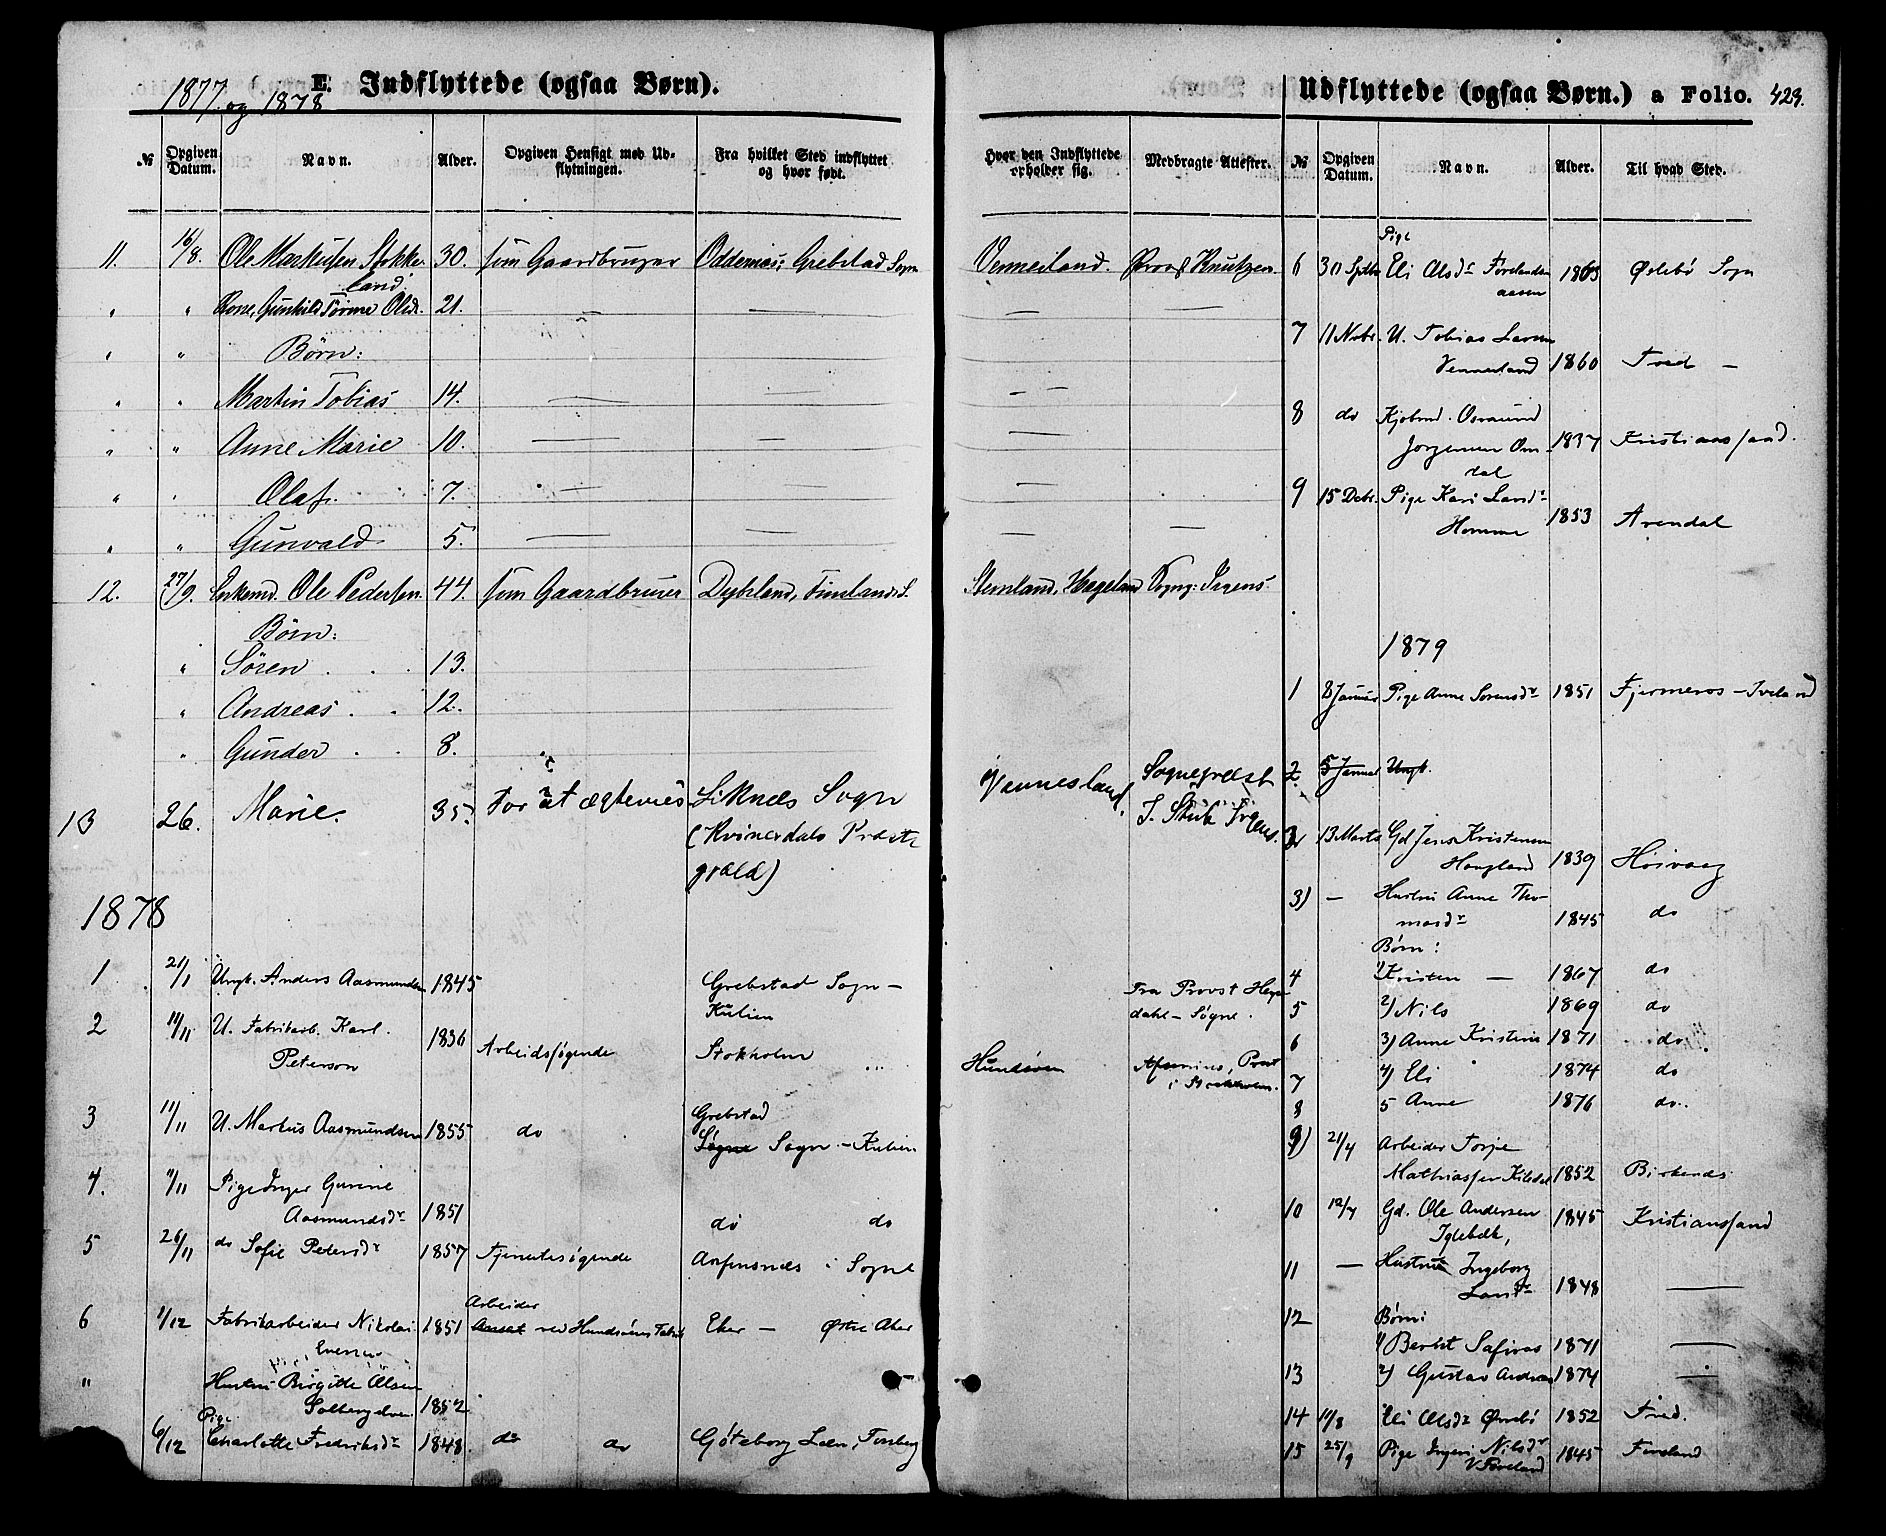 1877 og 1878
E. Indflyttede (ogsaa Børn).
№ Opgiven Datum. Navn. Alder. Opgiven Hensigt med Udflytningen. Fra hvilket Sted indflyttet og hvor født.
Hvor den Indflyttede opholder sig. Medbragte Attester.
11. 16/8. Ole Markussen Stokke- 30. som Gaardbruger Oddernes, Grebstad Sogn Vennesland. Provst Knutzen
land.
" " Kone, Gunhild Olsdr. 21. — — — —
" " Børn:
" " Martin Tobias 14. — — —
" " Anne Marie 10. — — —
" " Olaf. 7. — —
" " Gunvald 5. — — —
12. 27/9. Enkemd. Ole Pedersen. 44. som Gaardbruger Dybeland, Finslands S. Stemland, Hægeland Sognepr: Irgens.
Børn:
" Søren 13.
" Andreas 12.
" Gunder 8. "
13 26. Marie 35. For at ægtevies Liknæs Sogn Vennesland. Sognepræst
(Kvinesdals Præste J. Stub Irgens.
gjæld)
1878
1 21/1 Ungk. Anders Aasmundsen 1845 Grebstad Sogn - Fra Provst Heyer
Kulien dahl - Søgne.
2 11/11 U. Fabrikarb. Karl 1836 Arbeidsøgende Stokholm Hundsøen
Peterson i Stockholm.
3 11/11 U. Markus Aasmundsen 1855 do Grebstad
Søgne Sogn - Kulien
4. 11/11 Pige Inger Gurine
Aasmundsdr 1851 do do
5 26/11 do Sofie Petersdr 1857 Tjenestesøgende i Søgne
6 1/12 Fabrikarbeider Nikolai 1851 Arbeider
Ansat ved Hundsøens Fabrik Eker — Østre Aker
Iversen
" Hustru Birgitte Olsen
Solbergelven 1852
6/12 Pige
Charlotte Fredriksdr 1848. do do Göteborg Læn,
Udflyttede (ogsaa Børn.) a Folio. 424.
№ Opgiven Datum. Navn. Alder. Til hvad Sted.
6 30 Septbr Pige
Eli Olsdr Frøelands
aasen 1863 Øslebø Sogn
7 11 Novbr. U. Tobias Larsen
Vennesland 1860 Tved —
8 do Kjøbmd. Osmund
Jørgensen Om-
dal 1837 Kristianssand.
9 15 Decbr. Pige Kari Larsdr
Homme 1853 Arendal
1879
1 8 Januar Pige Anne Sorensdr 1851 Fjermeros - Iveland
2. 5 Januar Ungk.
2 13 Marts Gd Jens Kristensen
Haugland 1839 Høivaag
3) — Hustru Anne Tho-
masdr 1845 do
Børn:
4 1) Kristen — 1867 do
5 2) Nils 1869 do
6 3) Anne Kristine 1871 do.
7 4) Eli 1874 do
8 5 Anne 1876 do.
9) 21/4 Arbeider Torje
Mathiassen Kilsdal 1852 Birkenes
10 12/4 Gd. Ole Andersen
Iglebæk, 1845 Kristianssand
11 — Hustru Ingeborg
Larsdr 1848 —
12 Børn:
1) Berhit Safiras 1871 —
13 2) Gustav Andreas 1874 —
14 11/8 Eli Olsdr Øvrebø 1852 Tved.
15 25/9 Pige Ingeri Nilsdr
V. Frøeland 1845 Froeland